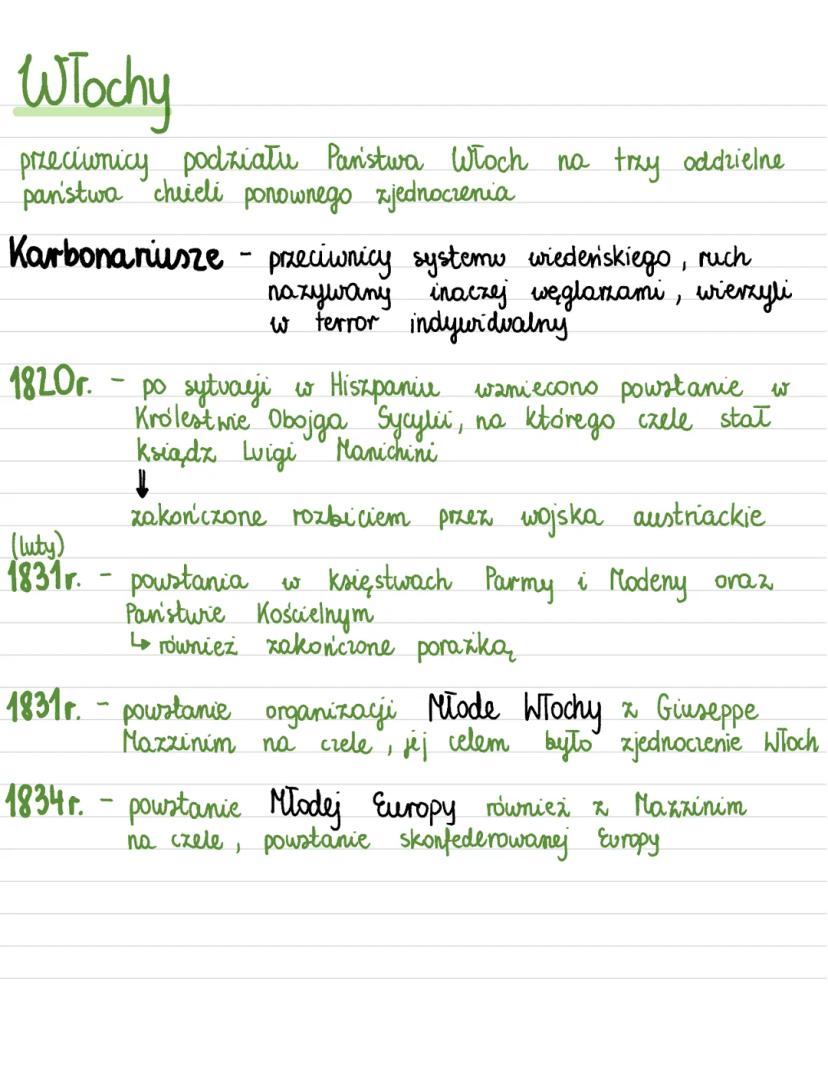 Włochy
przeciwnicy podziału Państwa Włoch na trzy oddzielne
państwa chcieli ponownego zjednoczenia
Karbonariusze - przeciwnicy systemu wiedeńskiego, ruch
nazywany inaczej węglarzami, wierzyli
w terror indywidualny
1820r. - po sytuacji w Hiszpanii wzniecono powstanie w
Królestwie Obojga Sycylii, na którego czele stał
ksiądz Luigi Manichini
⇓
zakończone rozbiciem przez wojska austriackie
(luty)
1831r. - powstania w księstwach Parmy i Modeny oraz
Państwie Kościelnym
↳ również zakończone porażką
1831r. - powstanie organizacji Młode Włochy z Giuseppe
Mazzinim na czele, jej celem było zjednoczenie Włoch
1834r. - powstanie Młodej Europy również z Mazzinim
na czele, powstanie skonfederowanej Europy